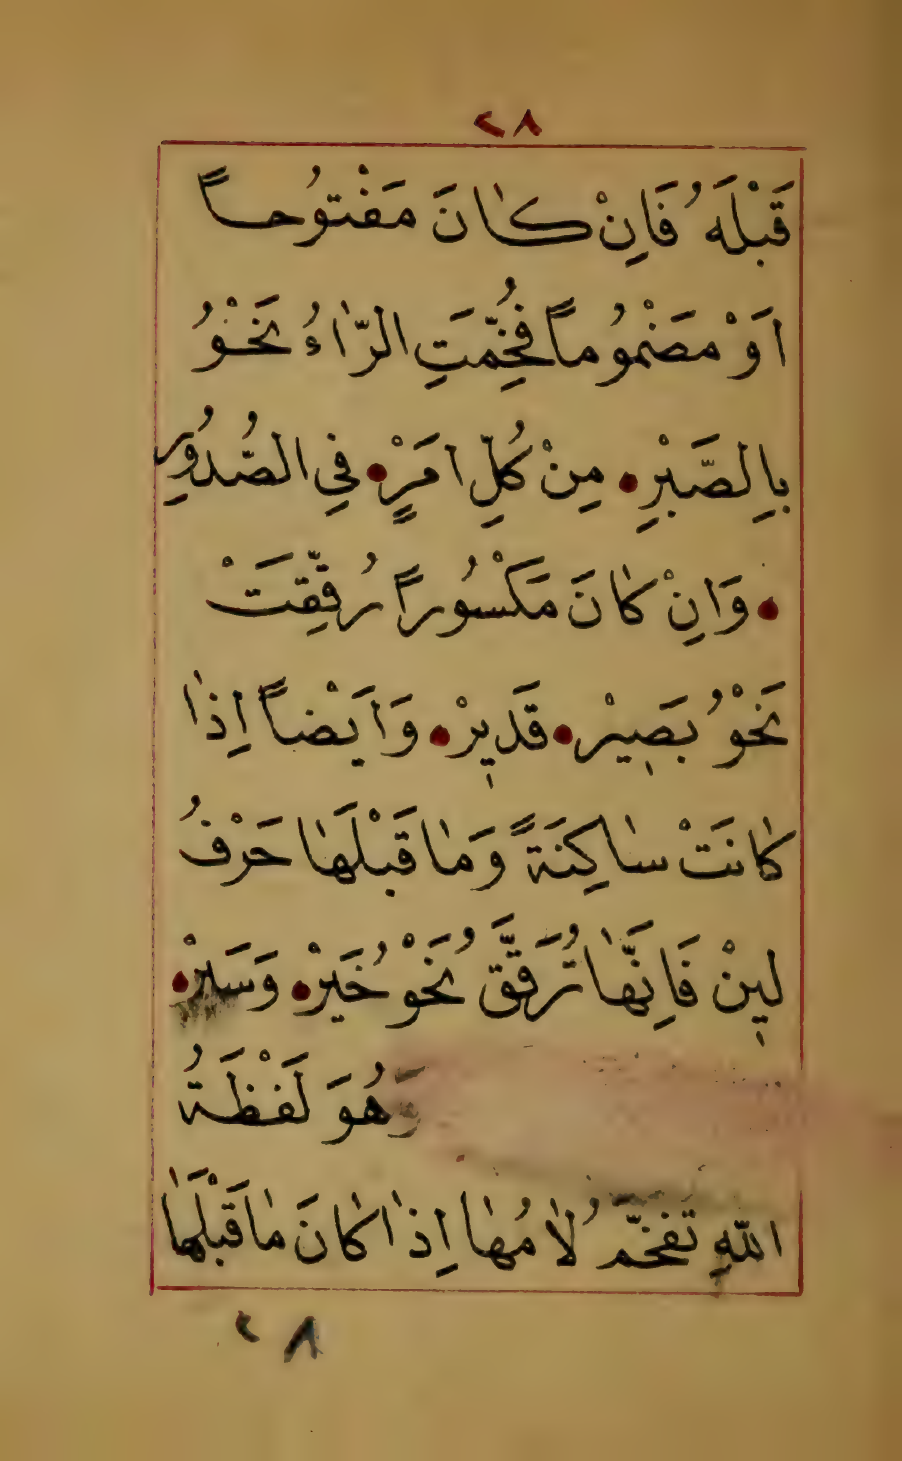 ٢٨
قَبْلَهُ فَاِنْ كَانَ مَفْتُوحاً
اَوْ مَضْمُوماً فُخِّمَتِ الرّٰاءُ نَحْوُ
بِالصَّبْرِ مِنْ كُلِّ امَرٍْ فِي الصُّدُورِ
وَاِنْ كٰانَ مَكْسُوراً رُقِّقَتْ
نَحْوُ بَصٖيرْ قَدٖيرْ وَاَيْضاً اِذٰا
كٰانَتْ سٰاكِنَةً وَمٰا قَبْلَهٰا حَرْفُ
لٖينْ فَاِنَّهٰا تُرَقَّقُ نَحْوُ خَيْرْ وَسَيْرْ
وَهُوَ لَفْظَةُ
اللّٰهِ تُفَخَّمُ لٰامُهٰا اِذٰا كٰانَ مٰا قَبْلَهٰا
٢٨